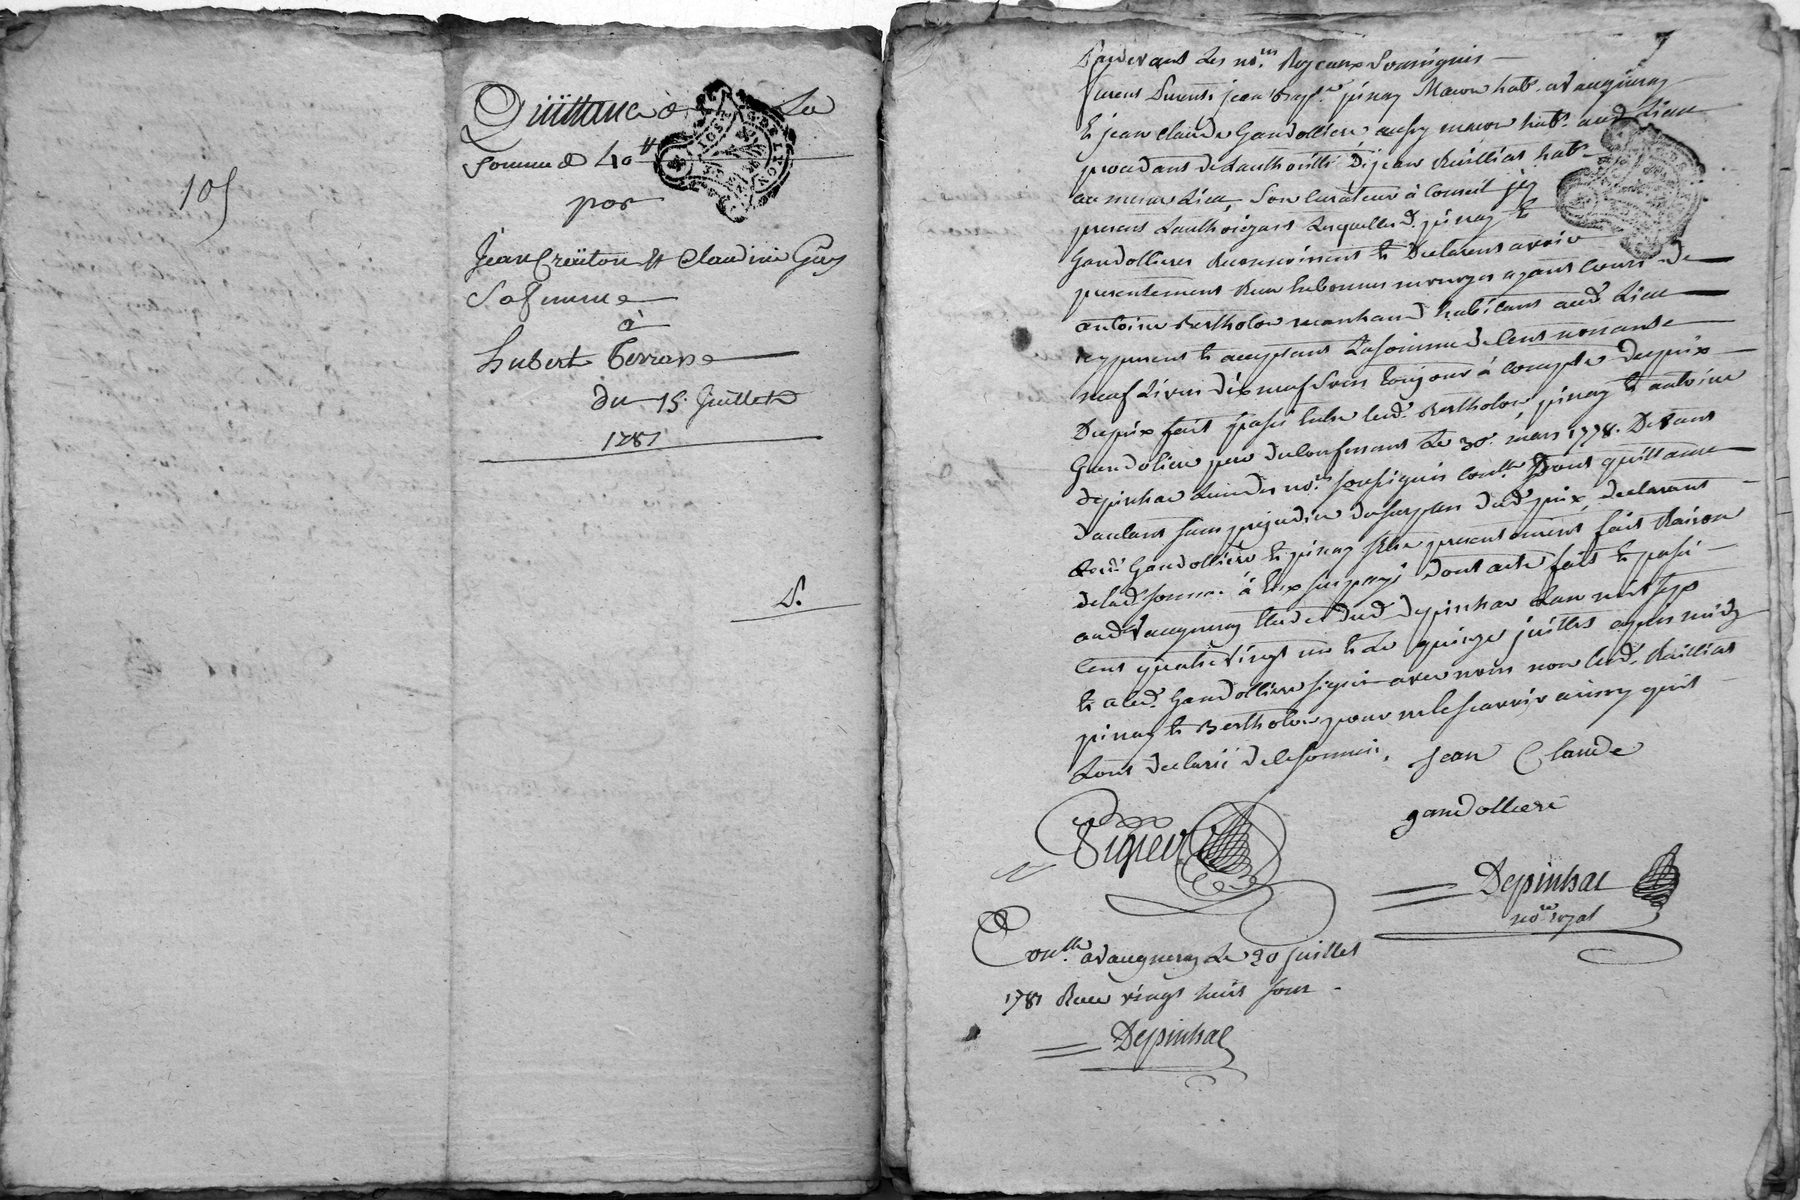 105
Quittance de La
somme de 40tt
par
Jean Creïtton et Claudine Guy
Sa femme
à
hubert terrasse
du 15 Juillet
1781
S.
Pardevant Les no.res Royeaux Soussignés
furent presents jean bapt.e pinay Macon hab.t a vaugneray
Et jean claude Gandolliere aussy macon hab.t aud. Lieu
procedant de Lauthorité De jean Railliat hab.t
au meme Lieu, Son Curateur à Conseil icy
present Lauthorizant Lesquelles d. pinay Et
Gandolliere Reconnoissent Et Declarent avoir
presentement Receu En bonnes monoyes ayant Cours de
antoine Bertholon marchand habitant aud. Lieu
icy present Et acceptant La somme de Cent nonante
neuf Livres dix neuf Sous Toujour à compte du prix
Du prix fait passé Entre led. Bertholon, pinay Et antoine
Gandoliere pere du Confessant Le 30. mars 1778. Devant
depinhac Lun des no.res soussignés Con.llé Dont quittance
dautant sans prejudice du surplus dud. prix, declarant
Led. Gandolliere Et pinay setre presentement fait Raison
de lad. somme à Eux payé dont acte fait Et passé
aud. Vaugneray Etude dud. Depinhac Lan mil sept
Cent quatre Vingt un Et Le quinze juillet apres midy
Et a led. Gandolliere signé avec nous non lesd. Railliat
pinay Et Bertholon pour ne le scavoir ainsy quil
Lont declaré de ce sommé. jean Claude
gandolliere
Viguier
Depinhac
no.re royal
Con.llé a Vaugneray Le 20 juillet
1781 Receu vingt huit sous
Depinhac